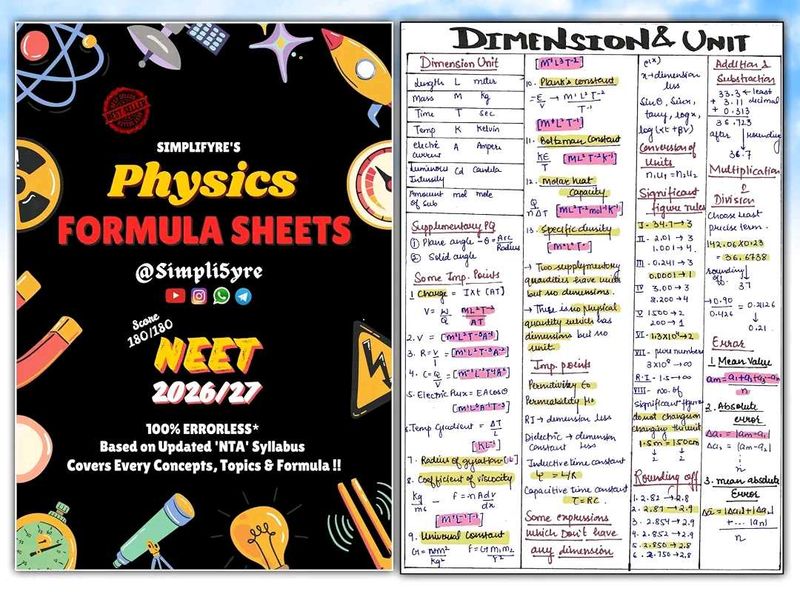 BEST SELLER
SIMPLIFYRE'S
Physics
FORMULA SHEETS
@Simpli5yre
Score
180/180
NEET
2026/27
100% ERRORLESS*
Based on Updated 'NTA' Syllabus
Covers Every Concepts, Topics & Formula !!
DIMENSION & UNIT
Dimension Unit
Length L meter
Mass M Kg
Time T Sec
Temp K Kelvin
electric current A Ampere
Luminous Intensity Cd Candela
Amount of Sub mol mole
Supplementary PQ
① Plane angle - θ = Arc/Radius
② Solid angle
Some Imp. Points
1. Charge = I×t [AT]
V = W/Q
2. V = [M¹L²T⁻³A⁻¹]
3. R = V/I
4. C = Q/V
5. Electric Flux = EA cosθ
6. Temp Gradient = ΔT/L
[KL⁻¹]
7. Radius of gyration
8. Coefficient of viscosity
F = η A dv/dx
[M¹L⁻¹T⁻¹]
9. Universal Constant
G = Nm²/kg²
F = G m₁m₂/r²
10. Plank's constant
= E/ν → M¹L²T⁻²/T⁻¹
[M¹L²T⁻¹]
11. Boltzman Constant
KE/T [ML²T⁻²K⁻¹]
12. Molar heat
capacity
Q/nΔT
13. Specific density
→ Two supplymentary
quantities have unit
but no dimensions.
→ There is no physical
quantity which has
dimensions but no
unit.
Imp. points
Permitivity ε₀
Permeability μ₀
RI → dimension less
Dielectric → dimension
Constant less
Inductive time constant
τ = L/R
Capacitive time constant
τ = RC.
Some expressions
which Don't have
any dimension
x → dimension
less
Sinθ, Sinx,
tany, logx,
log(αt + βv)
Conversion of
Units
n₁u₁ = n₂u₂
Significant
figure rules
I - 34.7 → 3
II - 2.01 → 3
1.001 → 4.
III - 0.241 → 3
0.0001 → 1
IV 3.00 → 3
8.200 → 4
V 1500 → 2
200 → 1
VII - pure numbers
VIII - no. of
Significant figure
do not change on
changing the unit
1.5m = 150cm
Rounding off
1. 2.82 → 2.8
2. 2.87 → 2.9
3. 2.854 → 2.9
4. 2.852 → 2.9
5. 2.850 → 2.8
6. 2.750 → 2.8
Addition &
Substraction
33.3 ← least
+ 3.11 decimal
+ 0.313
36.723
after rounding
36.7
Multiplication
Division
Choose least
precise term.
142.06 × 0.23
= 36.6738
rounding off
37
→ 0.90/0.426 = 2.1126
0.21
Error
1. Mean Value
am = a₁+a₂+a₃...aₙ/n
2. Absolute
error
Δa₁ = |am-a₁|
Δa₂ = |am-a₂|
3. mean absolute
Error
Δa = |Δa₁|+|Δa₂|
+ ... |an|
n